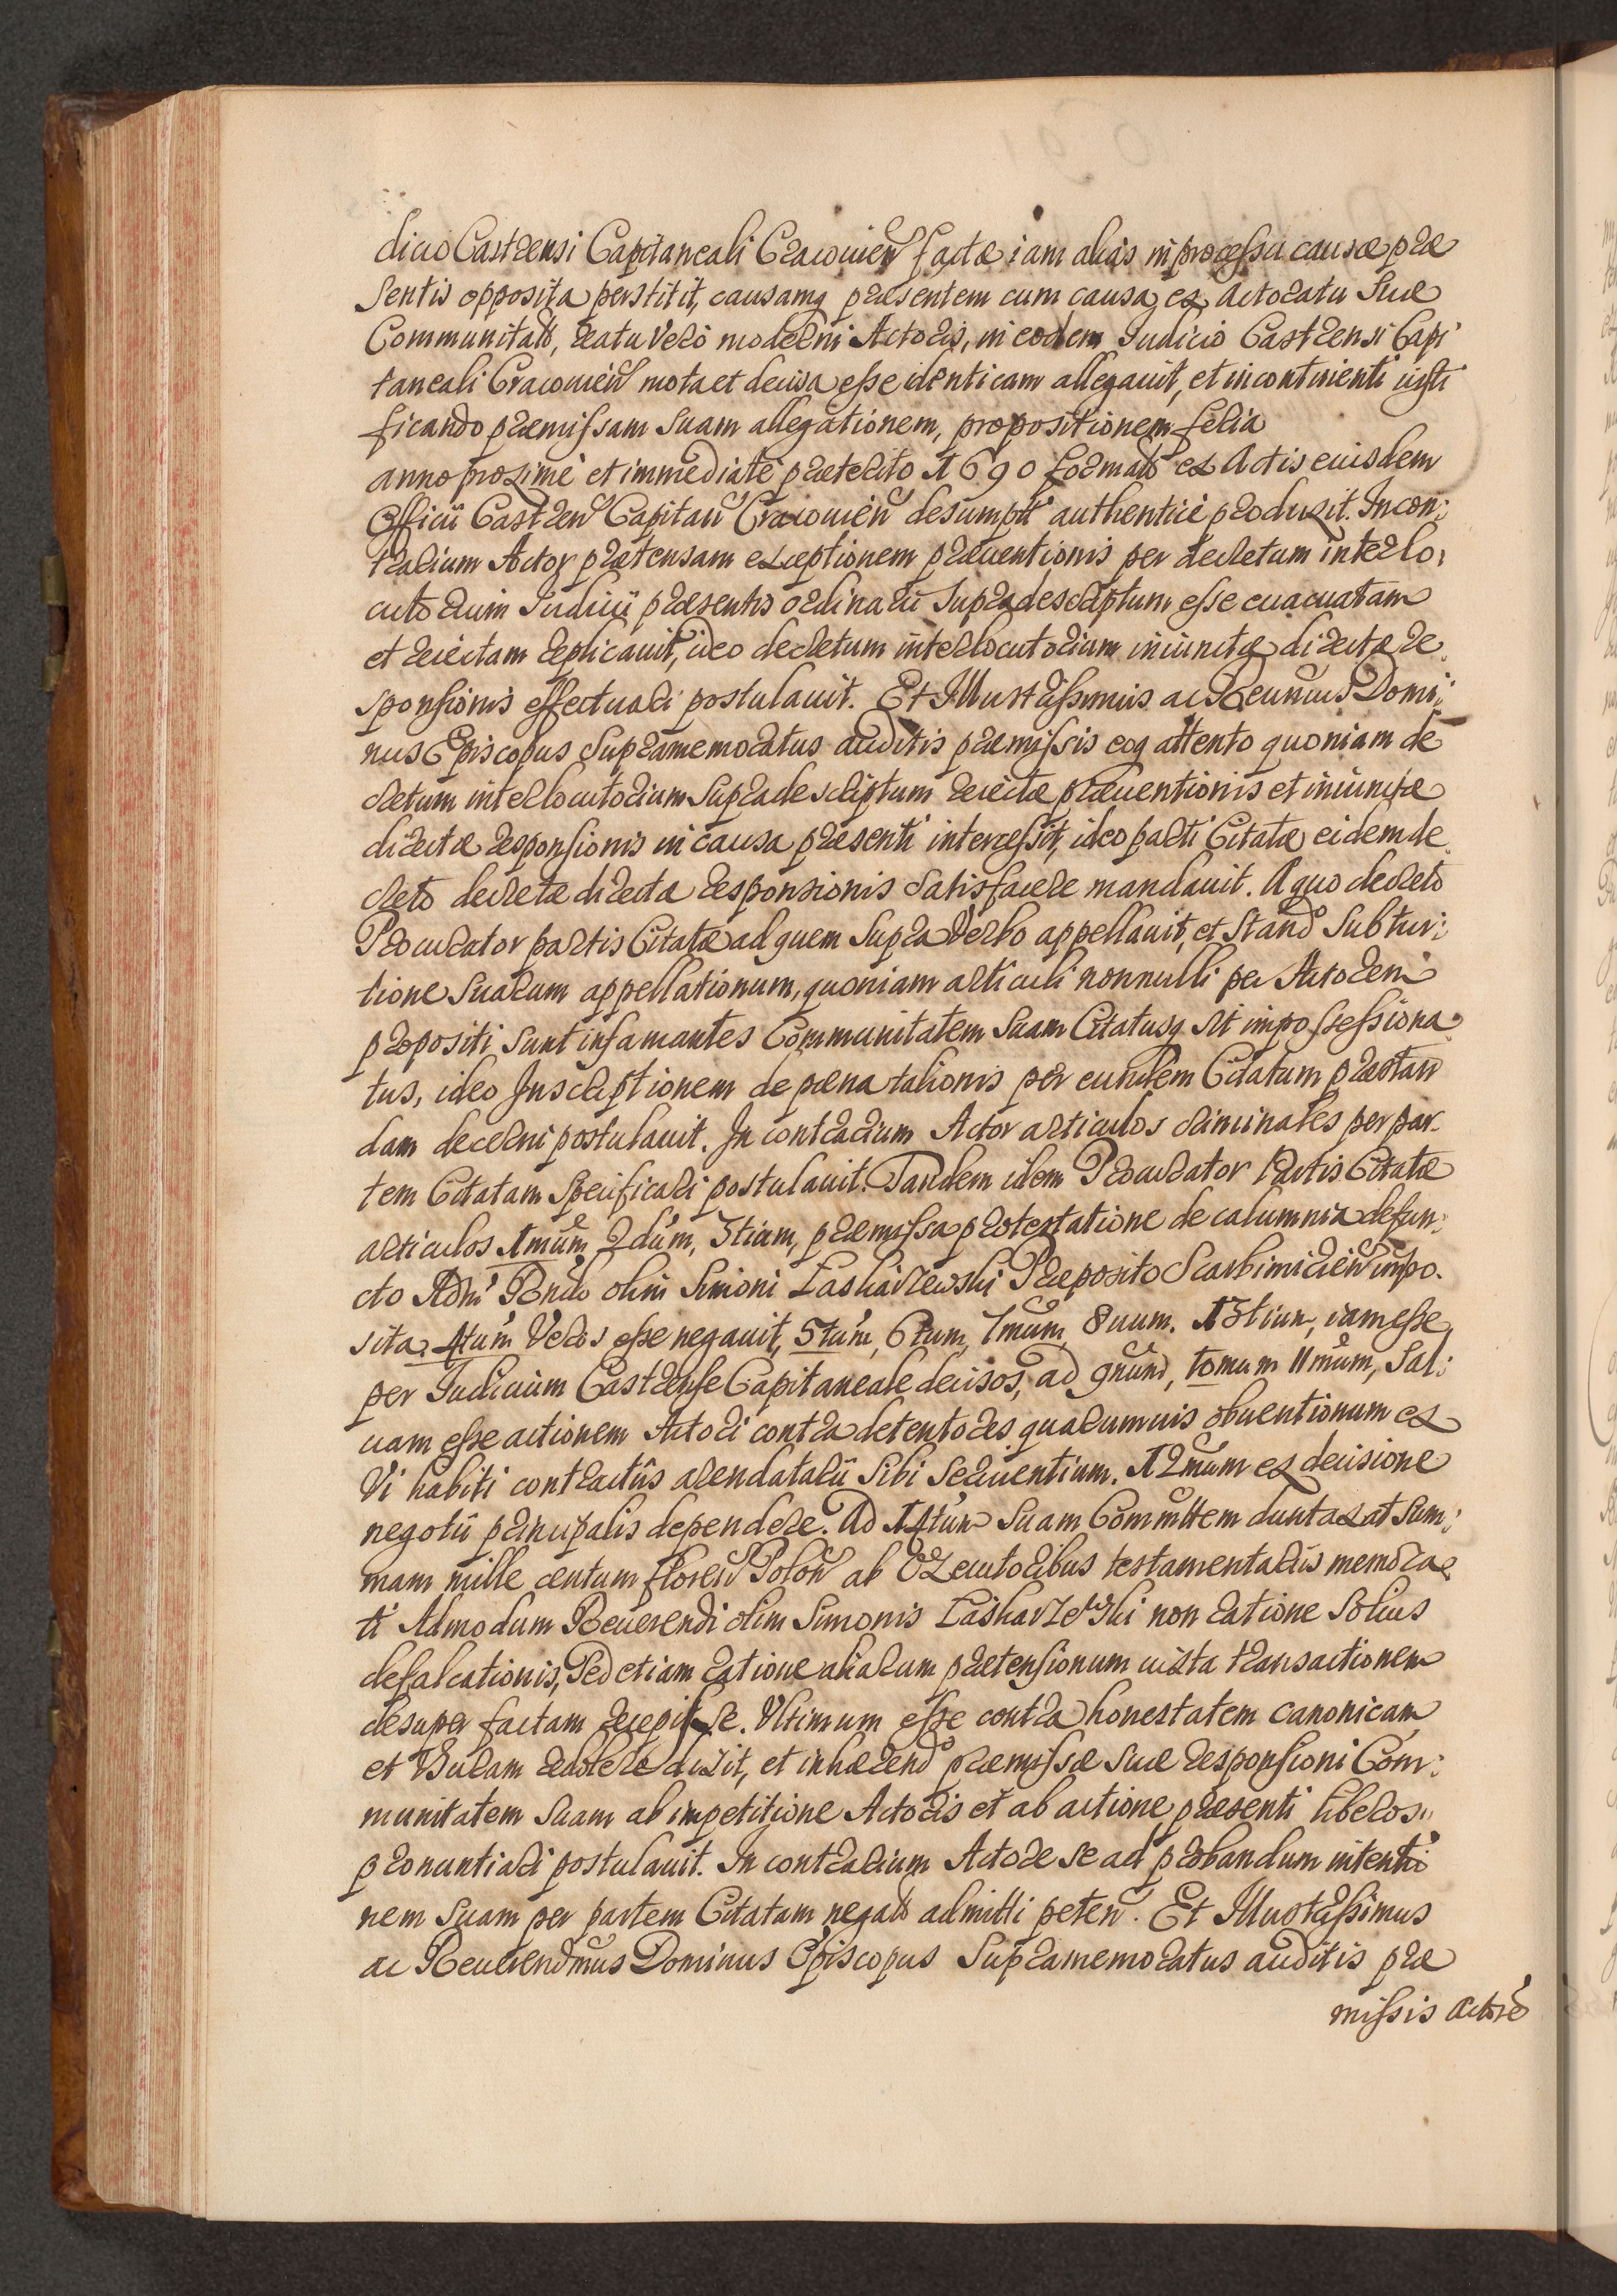 dicio Castrensi Capitaneali Cracouien̄ factæ iam alias in processu causæ præ
sentis opposita perstitit, causamq præsentem cum causa ex Actoratu suæ
Communitatis, reatu vero moderni Actoris, in eodem Iudicio Castrensi Capi
taneali Cracouien̄ mota et decisa esse identicam allegauit, et incontinenti iusti
ficando præmissam suam allegationem, propositionem feria
anno proxime et immediate præterito 1690 formatā ex Actis eiusdem
Officii Castren̄ Capitan̄ Cracouien̄ desumptā authentice produxit. In con:
trarium Actor prætensam exceptionem præuentionis per decretum interlo:
cutorium Iudicii præsentis ordinarii supradescriptum esse euacuatam
et reiectam replicauit, ideo decretum interlocutorium iniunctæ directæ re
sponsionis effectuari postulauit. Et Illustrissimus ac Reuñdus Domi:
nus Episcopus supramemoratus auditis præmissis eoq attento quoniam de
cretum interlocutorium supradescriptum reiectæ præuentionis et iniunctæ
directæ responsionis in causa præsenti intercessit, ideo parti Citatæ eidem de
creto decretæ directa responsionis satisfacere mandauit. A quo decreto
Procurator partis Citatæ ad quem supra verbo appellauit, et stando sub tui:
tione suarum appellationum, quoniam articuli nonnulli per Actorem
propositi sunt infamantes Communitatem suam Citatusq sit impossessiona
tus, ideo Inscriptionem de pæna talionis per eundem Citatum præstan
dam decerni postulauit. In contrarium Actor articulos criminales per par
tem Citatam specificari postulauit. Tandem idem Procurator Partis Citatæ
articulos 1mum 2dum, 3tium, præmissa protestatione de calumnia defun:
cto Adm̄ Rndo olim Simoni Laskarzewski Præposito Scarbimirien̄ impo.
sita, 4tum veros esse negauit, 5tum, 6tum, 7mum 8uum. 13tium, iam esse
per Iudicium Castrense Capitaneale decisos, ad 9num, 10mum 11mum, sal:
uam esse actionem Actori contra detentores quarumuis obuentionum ex
vi habiti contractûs arendatarii sibi seruientium. 12mum ex decisione
negotii principalis dependere. Ad 14tum suam Commttem duntaxat sum:
mam mille centum floren̄ Polon̄ ab Executoribus testamentariis memora
ti Admodum Reuerendi olim Simonis Laskarzewski non ratione solius
defalcationis, sed etiam ratione aliarum prætensionum iuxta transactionem
desuper factam recepisse. Vltimum esse contra honestatem canonicam
et redolere dixit, et inhærendo præmissæ suæ responsioni Com:
munitatem suam ab impetitione Actoris et ab actione præsenti liberos
pronuntiari postulauit. In contrarium Actore se ad probandum intentio
nem suam per partem Citatam negatā admitti peten̄. Et Illustrissimus
ac Reuerendmus Dominus Episcopus supramemoratus auditis præ
missis actore